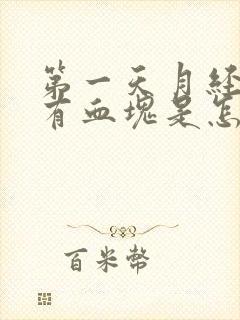 第一天月经
有血块是怎
百米币